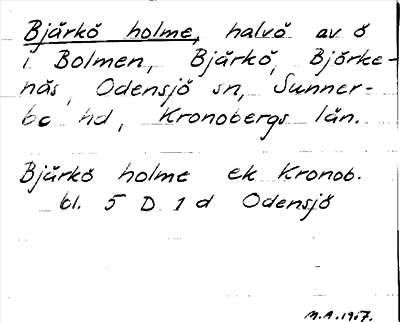 Bjärkö holme, halvö av ö
i Bolmen, Bjärkö, Björke-
näs, Odensjö sn, Sunner-
bo hd, Kronobergs län.
Bjärkö holme ek Kronob.
bl. 5 D 1 d Odensjö
M.A. 1967.